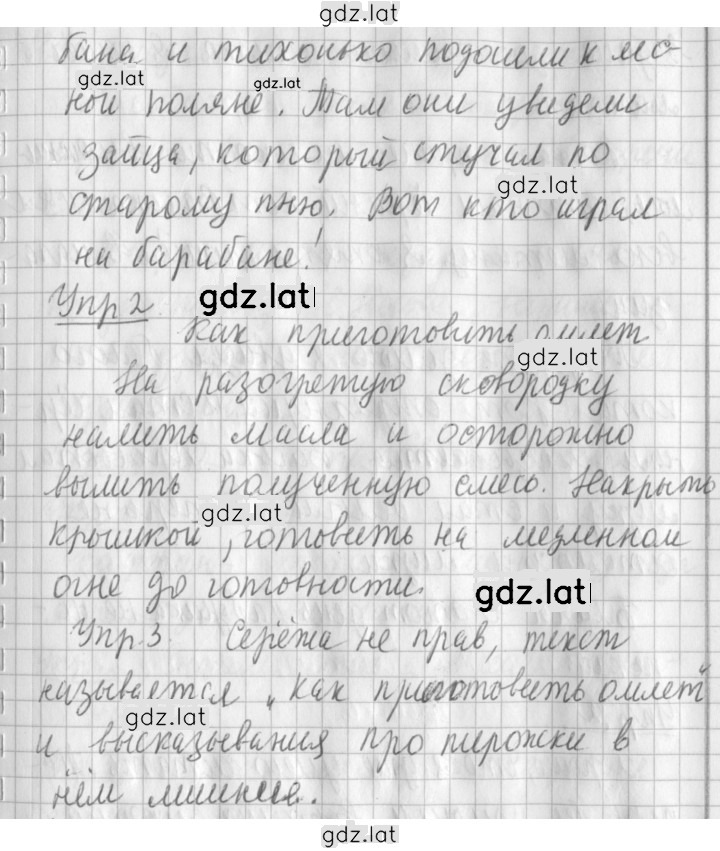 gdz.lat
бана и тихонько подошли к лес-
gdz.lat
gdz.lat
ной поляне. Там они увидели
зайца, который стучал по
gdz.lat
старому пню. Вот кто играл
на барабане!
Упр 2 gdz.lat
Как приготовить омлет
gdz.lat
На разогретую сковородку
налить масла и осторожно
вылить полученную смесь. Накрыть
gdz.lat
крышкой, готовить на медленном
огне до готовности.
gdz.lat
Упр.3. Серёжа не прав, текст
называется „Как приготовить омлет"
gdz.lat
и высказывания про пирожки в
нём лишнее.
gdz.lat